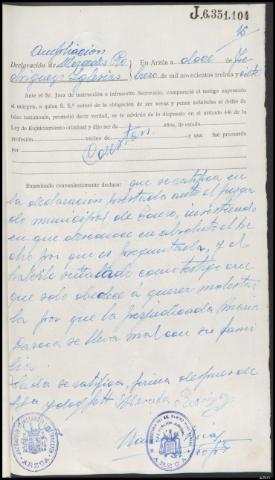 J.6.351.104
Ampliación
Declaración de Mercedes Ro En Arzúa a doce de Fe
dríguez Iglesias brero de mil novecientos treinta y siete
Ante el Sr. Juez de instrucción e infrascrito Secretario, compareció el testigo expresado
al margen, a quien S. S.ª enteró de la obligación de ser veraz y penas señaladas al delito de
falso testimonio, prometió decir verdad, se le advirtió de lo dispuesto en el artículo 446 de la
Ley de Enjuiciamiento criminal y dijo ser de años, de estado
profesión vecino de y que fué procesado
por
Constan
Examinado convenientemente declara: que se ratifica en
la declaración prestada ante el juzga
do municipal de insistiendo
en que desconoce en absoluto el he
cho por que es preguntada, y el
haberle citado como testigo cree
que solo obedece a querer molestar
la por que la perjudicada María
se lleva mal con su fami
lia.
Leida se ratifica, firma despues de
S.Sª y doy fe Mercedes Rodríguez
ARZUA
ARZUA